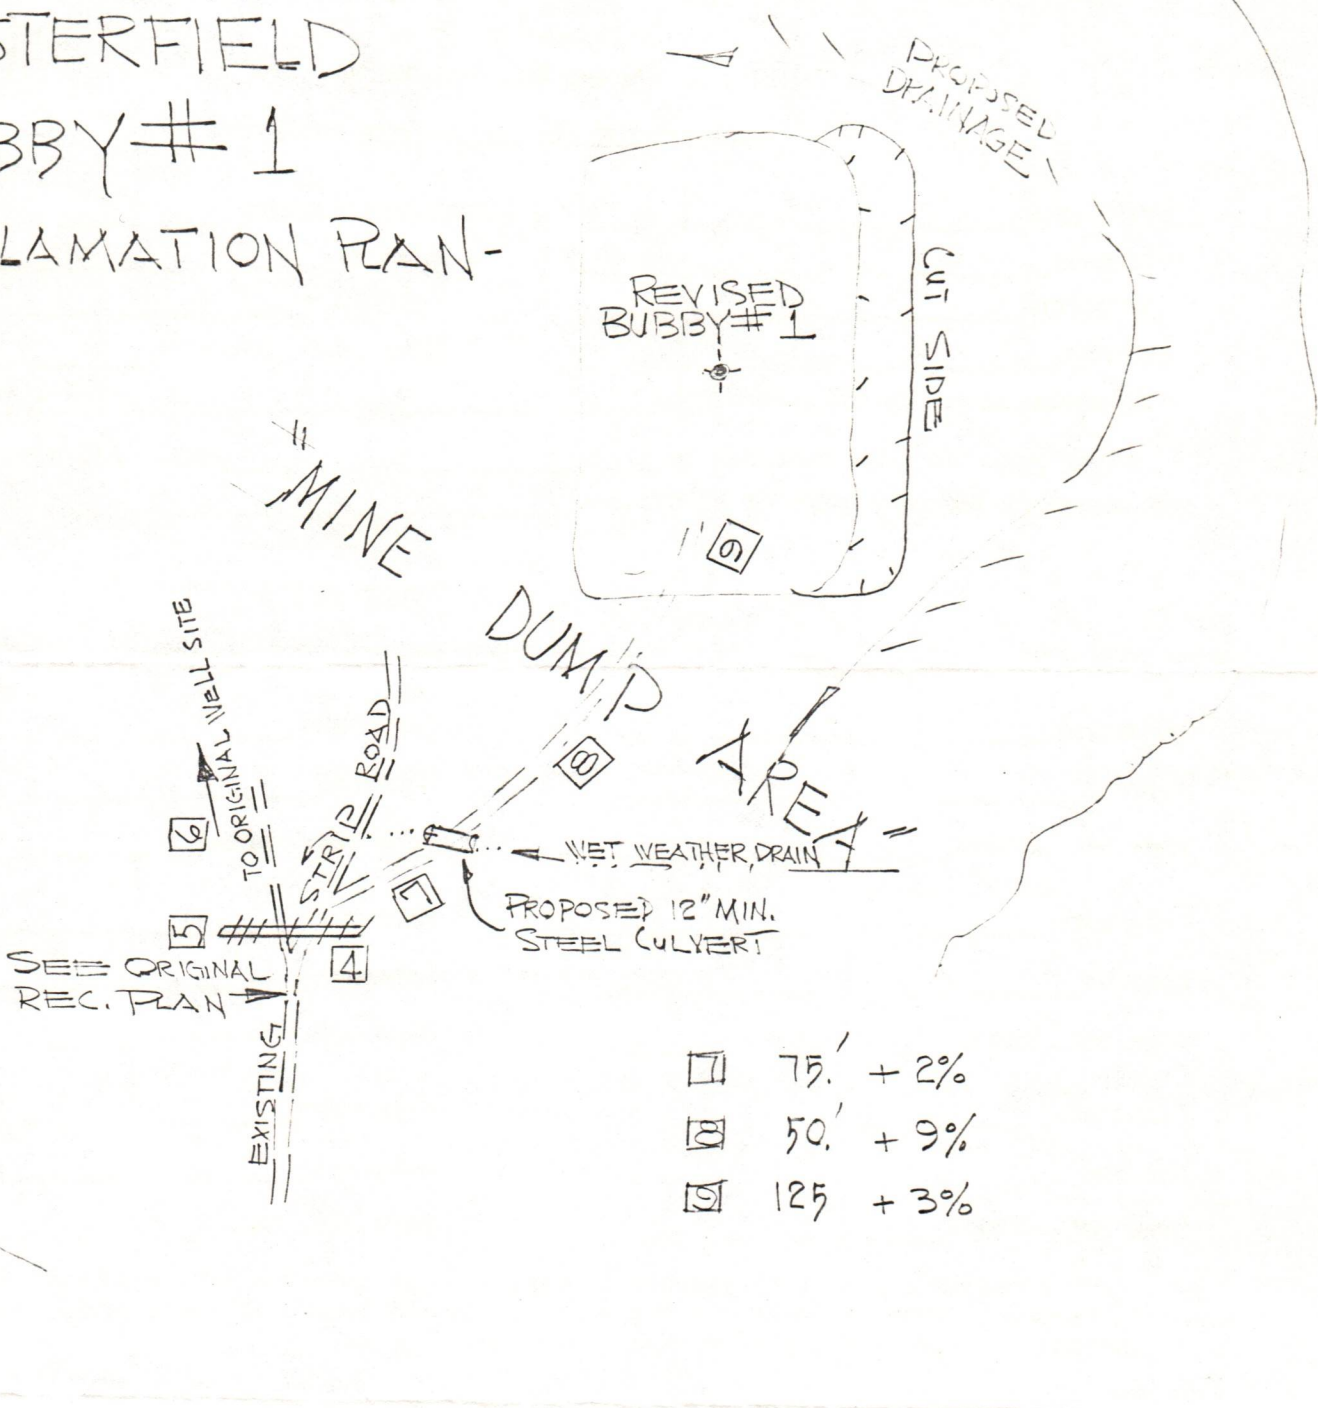 STERFIELD
BBY # 1
LAMATION PLAN-
PROPOSED
DRAINAGE
REVISED
BUBBY # 1
CUT SIDE
"MINE DUMP AREA"
9
TO ORIGINAL WELL SITE
STRIP ROAD
8
6
7
WET WEATHER DRAIN
PROPOSED 12" MIN.
STEEL CULVERT
5
4
SEE ORIGINAL
REC. PLAN
EXISTING
7 75.' + 2%
8 50.' + 9%
9 125 + 3%